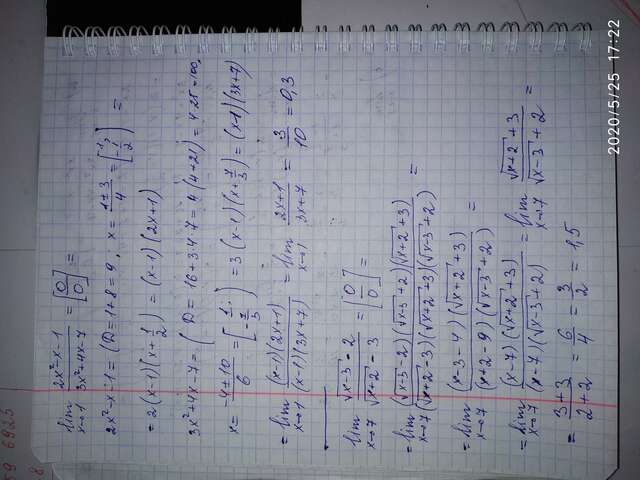 lim x→1 (2x²-x-1)/(3x²+4x-7) = [0/0] =
2x²-x-1 = (D=1+8=9, x = (1±3)/4 = [1; -1/2]) =
= 2(x-1)(x+1/2) = (x-1)(2x+1)
3x²+4x-7 = (D=16+3·4·7 = 4(4+21) = 4·25=100,
x = (-4±10)/6 = [1; -7/3]) = 3(x-1)(x+7/3) = (x-1)(3x+7)
= lim x→1 ((x-1)(2x+1))/((x-1)(3x+7)) = lim x→1 (2x+1)/(3x+7) = 3/10 = 0,3
lim x→7 (√x-3 - 2)/(√x+2 - 3) = [0/0] =
= lim x→7 ((√x-3 -2)(√x-3 +2)(√x+2 +3))/((√x+2 -3)(√x+2 +3)(√x-3 +2)) =
= lim x→7 ((x-3-4)(√x+2 +3))/((x+2-9)(√x-3 +2)) =
= lim x→7 ((x-7)(√x+2 +3))/((x-7)(√x-3 +2)) = lim x→7 (√x+2 +3)/(√x-3 +2) =
= (3+3)/(2+2) = 6/4 = 3/2 = 1,5
59 6925
8
2020/5/25 17:22